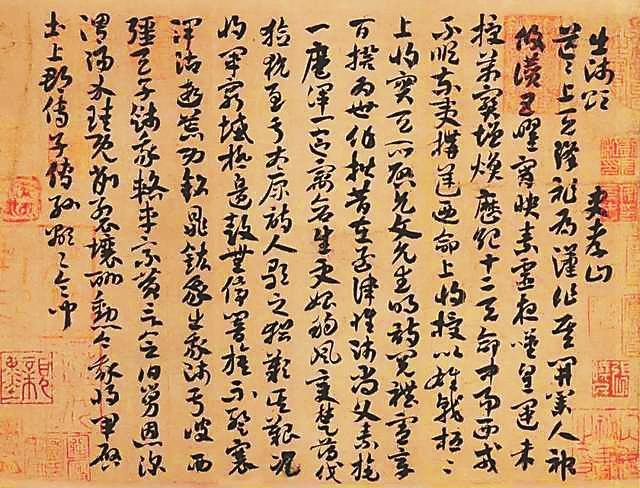 出師頌 史孝山
茫茫上天降祚為漢作基開業人神
攸讚五曜宵映素靈夜歎皇運未
授萬寶增煥歷紀十二天命中易西戎
不順東夷構逆乃命上將授以雄戟桓桓
上將寔天所啟允文允武明詩閱禮憲章
百揆為世作楷昔在孟津惟師尚父素旄
一麾渾一區宇蒼生更始朔風變楚薄伐
獫狁至于太原詩人歌之猶歎其艱況
我將軍窮城極邊鼓無停響旗不蹔褰
澤霑遐荒功銘鼎鉉我出我師于彼西
疆天子餞我路車乘黃言念伯舅恩深
渭陽介珪既削裂壤酬勳今我將軍啟
土上郡傳子傳孫顯顯令問